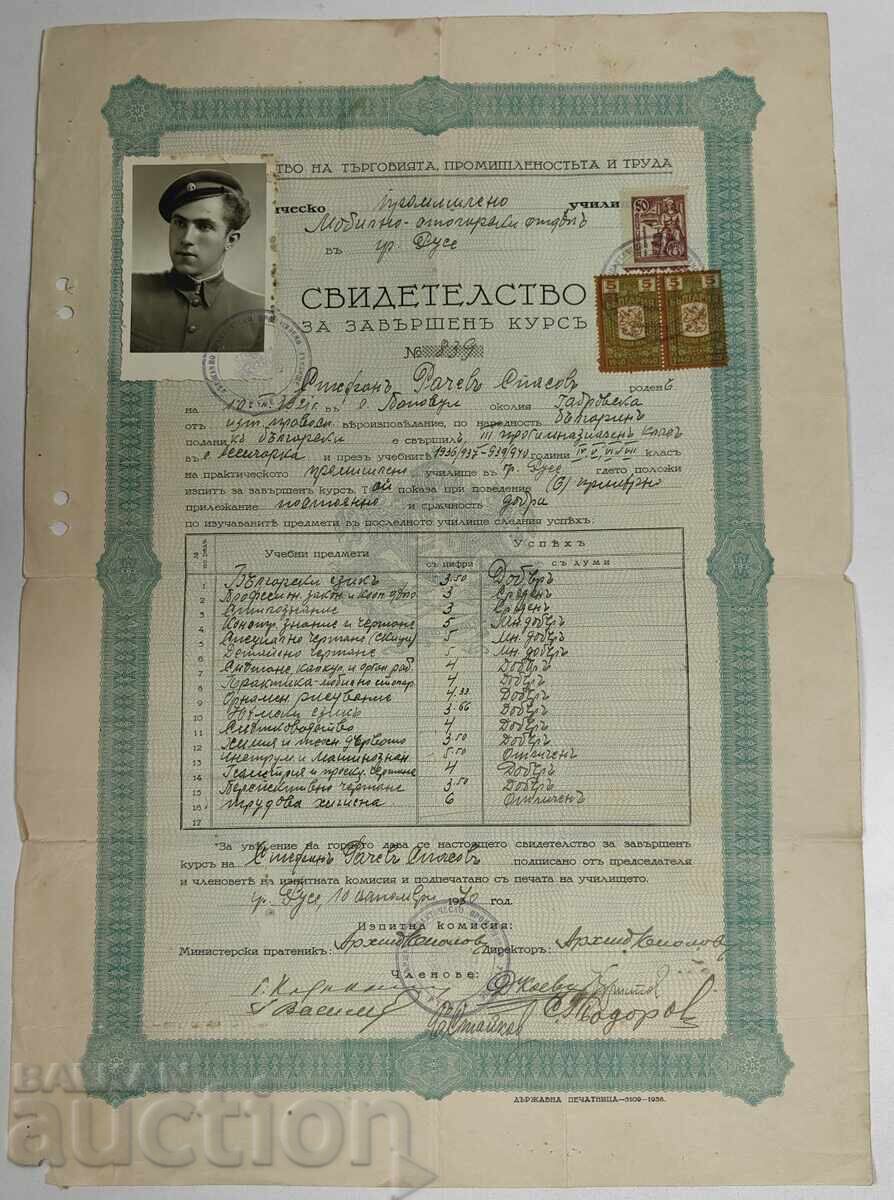 ТВО НА ТЪРГОВИЯТА, ПРОМИШЛЕНОСТЬТА И ТРУДА
ИЧЕСКО Промишлено УЧИЛИ
Мобилно-столарски отдѣлъ
ВЪ гр. Русе
50
5 5 5 5
БЪЛГАРИЯ
СВИДЕТЕЛСТВО
ЗА ЗАВЪРШЕНЪ КУРСЪ
№ 839
Стефанъ Рачевъ Спасовъ роденъ
на 1921 г. въ с. околия Габровска
от изт. православ. вѣроизповѣдание, по народность българинъ
поданикъ български е свършилъ III прогимназиаленъ класъ
въ с. и презъ учебнитѣ 1936/937-939/940 години IV V VI и VII класъ
на практическото промишлен. училище въ гр. Русе, гдето положи
изпитъ за завършенъ курсъ. Той показа при поведение (6) примѣрно
прилежание постоянно и сръчность добра
по изучаванитѣ предмети въ последното училище следния успѣхъ:
№ Учебни предмети Успѣхъ
съ цифри съ думи
1 Български езикъ 3.50 Добъръ
2 Професион. закон. и кооп. дѣло 3 Среденъ
3 Стилознание 3 Среденъ
4 Констр. знание и чертане 5 Мн. добъръ
5 Специално чертане (скици) 5 Мн. добъръ
6 Детайлно чертане 5 Мн. добъръ
7 Смѣтане, калкул. и орган. раб. 4 Добъръ
8 Практика-мобилно столар. 4 Добъръ
9 Орнамен. рисуване 4.33 Добъръ
10 Нѣмски езикъ 3.66 Добъръ
11 Смѣтководство 4 Добъръ
12 Химия и техн. дървото 3.50 Добъръ
13 Инструм. и машинознан. 5.50 Отличенъ
14 Геометрия и проекц. чертане 4 Добъръ
15 Перспективно чертане 3.50 Добъръ
16 Трудова хигиена 6 Отличенъ
17
За увѣрение на горното дава се настоящето свидетелство за завършенъ
курсъ на Стефанъ Рачевъ Спасовъ подписано отъ председателя
и членоветѣ на изпитната комисия и подпечатано съ печата на училището.
гр. Русе, 10 1940 год.
Изпитна комисия:
Министерски пратеникъ: Директоръ:
Членове:
Г. Василев
Стайков
С. Тодоров
ДЪРЖАВНА ПЕЧАТНИЦА—3109—1936.
BALKAN
auction